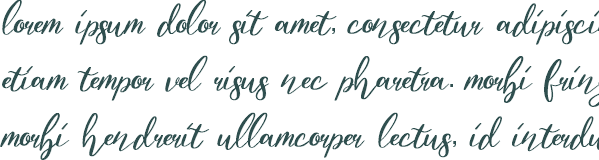 lorem ipsum dolor sit amet, consectetur adipisci
etiam tempor vel risus nec pharetra. morbi fring
morbi hendrerit ullamcorper lectus, id interdu